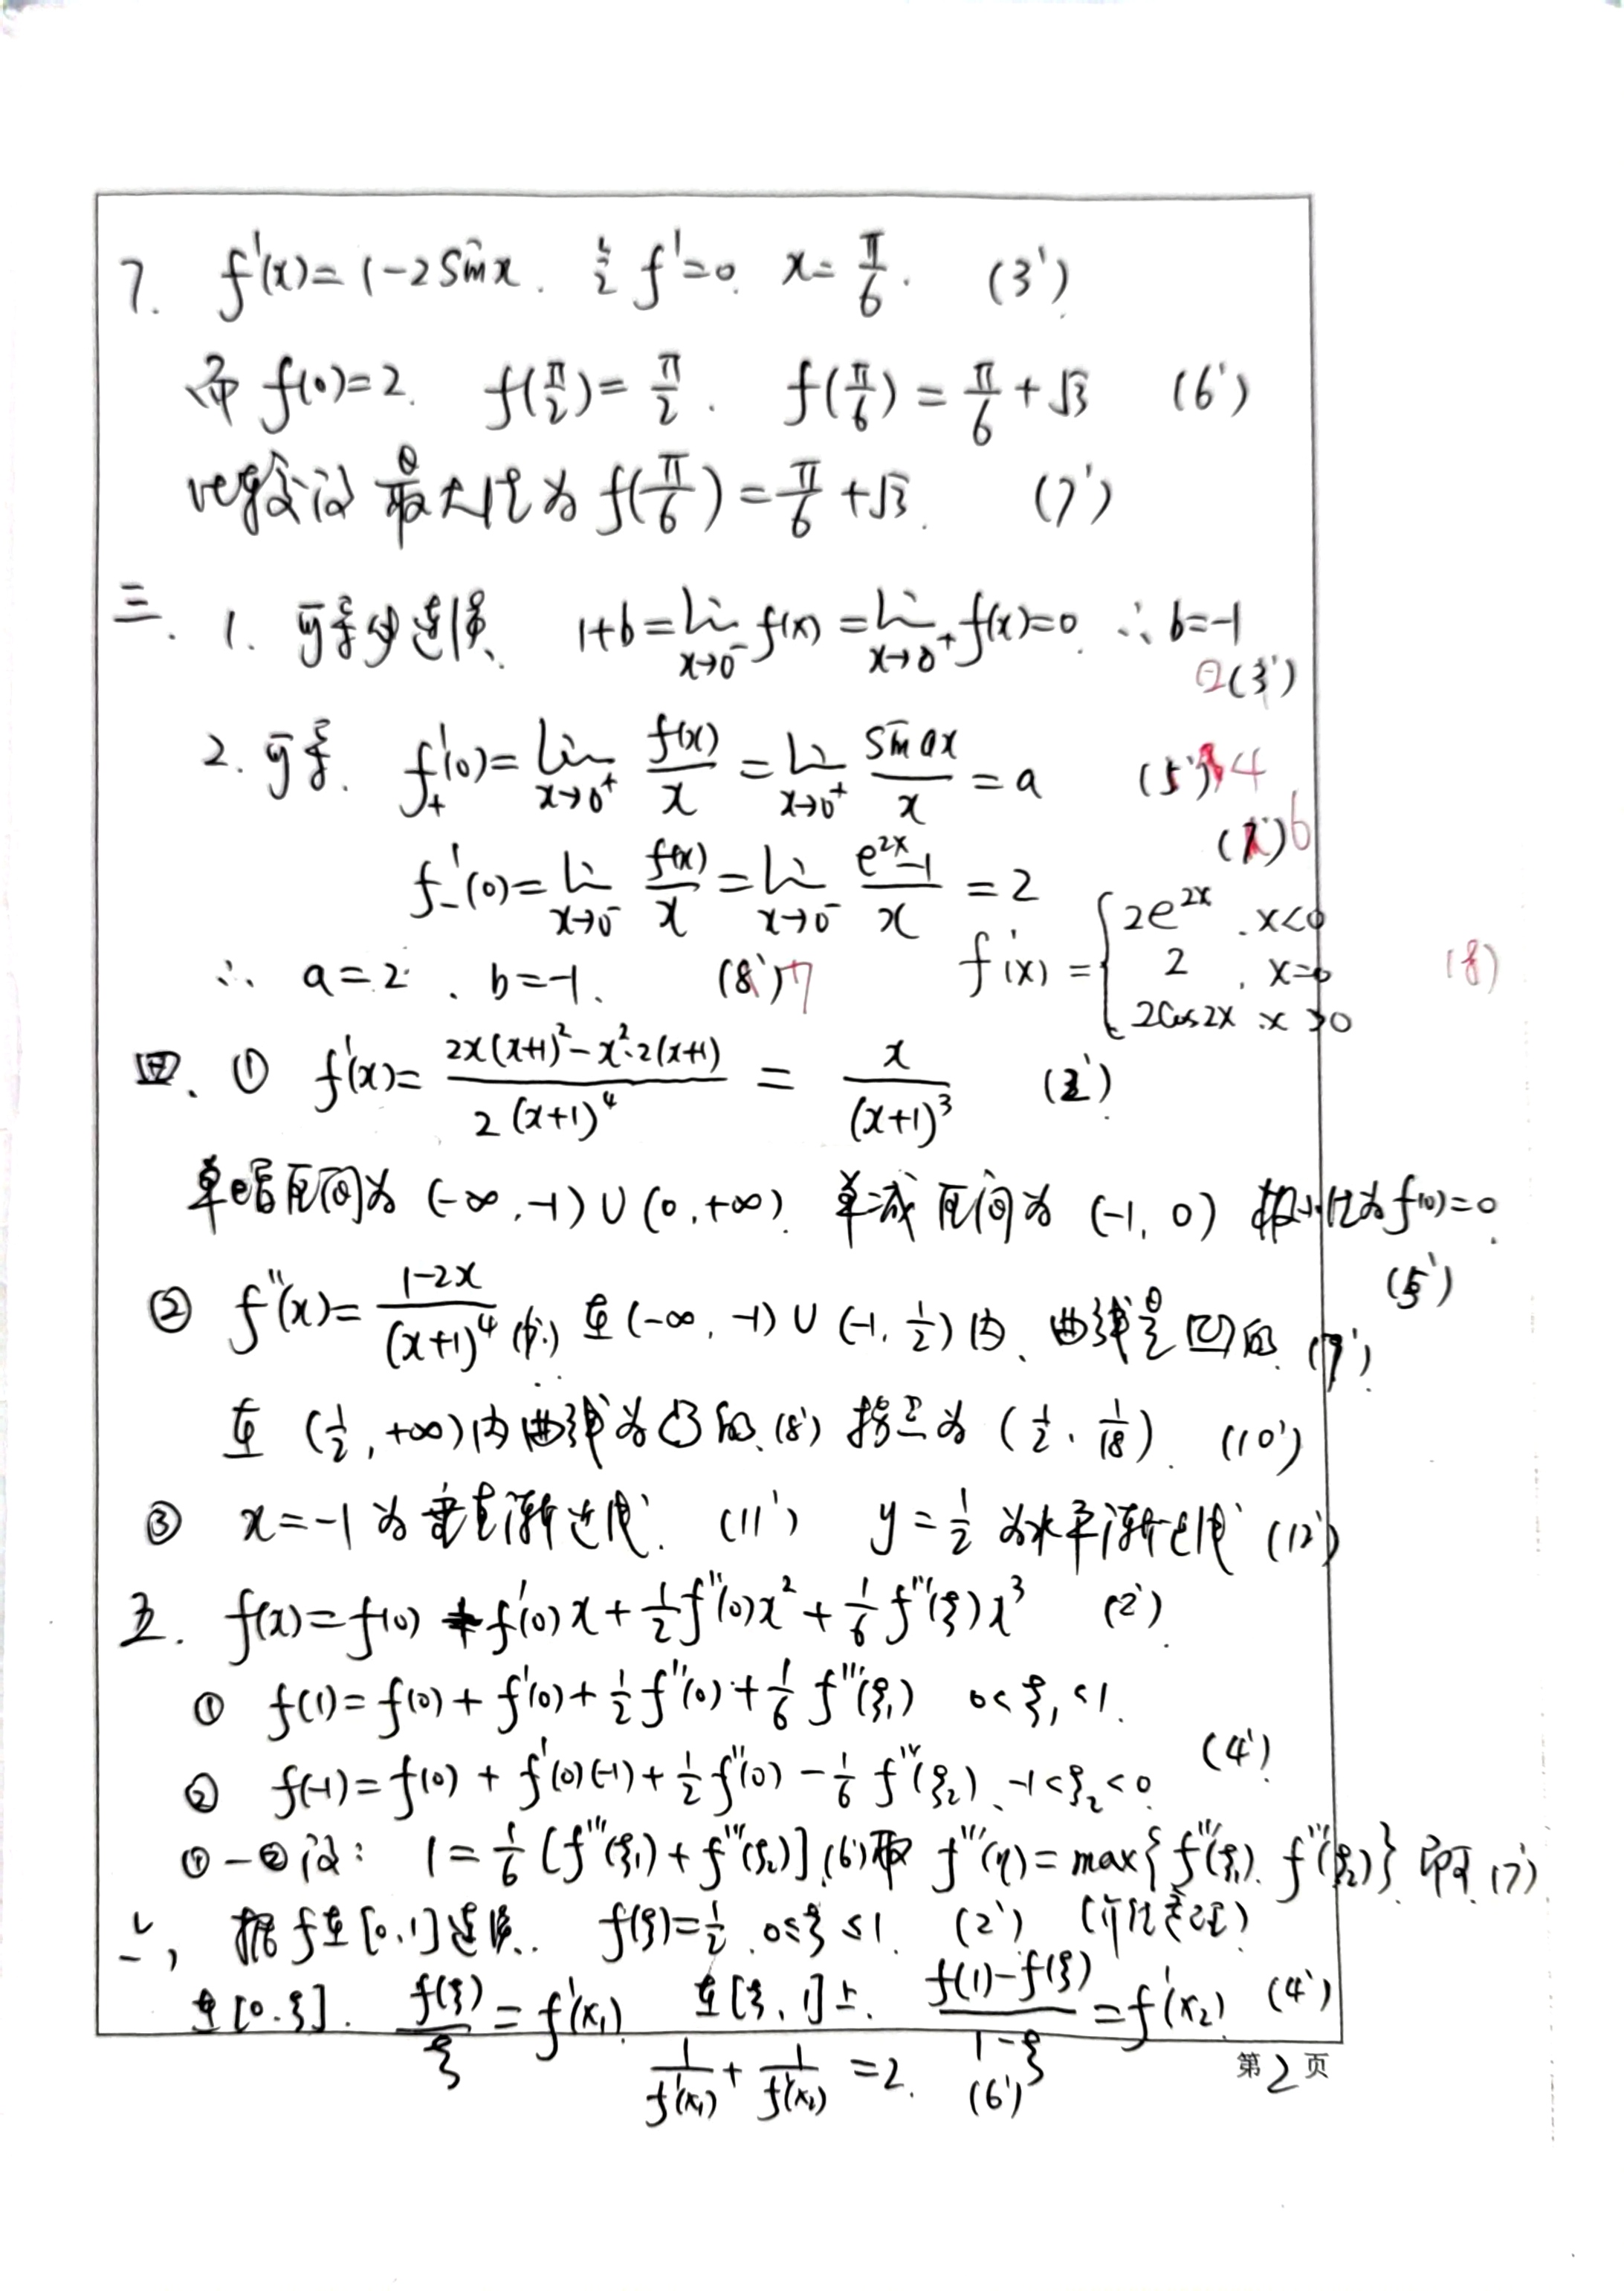 7. f'(x)=1-2sinx. 令f'=0. x=π/6. (3')
而 f(0)=2. f(π/2)=π/2. f(π/6)=π/6+√3 (6')
比较知 最大值为 f(π/6)=π/6+√3. (7')
三. 1. 可导必连续、 1+b=lim_{x→0⁻} f(x)=lim_{x→0⁺} f(x)=0. ∴b=-1
(3')
2. 可导. f'₊(0)=lim_{x→0⁺} f(x)/x=lim_{x→0⁺} sin ax/x=a (5') 4
( ) 6
f'₋(0)=lim_{x→0⁻} f(x)/x=lim_{x→0⁻} (e^{2x}-1)/x=2
∴ a=2. b=-1. (8') 7 f'(x)={2e^{2x}. x<0
2 . x=0
2cos2x . x>0 (8)
四、① f'(x)=(2x(x+1)²-x²·2(x+1))/(2(x+1)⁴)=x/(x+1)³ (2')
单增区间为 (-∞,-1)∪(0,+∞). 单减区间为 (-1,0) 极小值为f(0)=0.
(5')
② f''(x)=(1-2x)/(x+1)⁴ 在(-∞,-1)∪(-1,1/2)内、曲线是凹的. (7')
在 (1/2,+∞)内曲线为凸的、(8') 拐点为 (1/2、1/18). (10')
③ x=-1 为垂直渐近线. (11') y=1/2 为水平渐近线 (12')
五. f(x)=f(0)+f'(0)x+1/2f''(0)x²+1/6f'''(ξ)x³ (2').
① f(1)=f(0)+f'(0)+1/2f''(0)+1/6f'''(ξ₁) 0<ξ₁<1.
(4')
② f(-1)=f(0)+f'(0)(-1)+1/2f''(0)-1/6f'''(ξ₂)、-1<ξ₂<0.
①-②得: 1=1/6[f'''(ξ₁)+f'''(ξ₂)].(6')取 f'''(η)=max{f'''(ξ₁). f'''(ξ₂)}. 即可. (7')
六, 据f在[0,1]连续. f(ξ)=1/2. 0≤ξ≤1. (2') (介值定理)
在[0.ξ]. f(ξ)/ξ=f'(x₁). 在[ξ,1]上. (f(1)-f(ξ))/(1-ξ)=f'(x₂). (4')
1/f'(x₁)+1/f'(x₂)=2. (6')
第2页